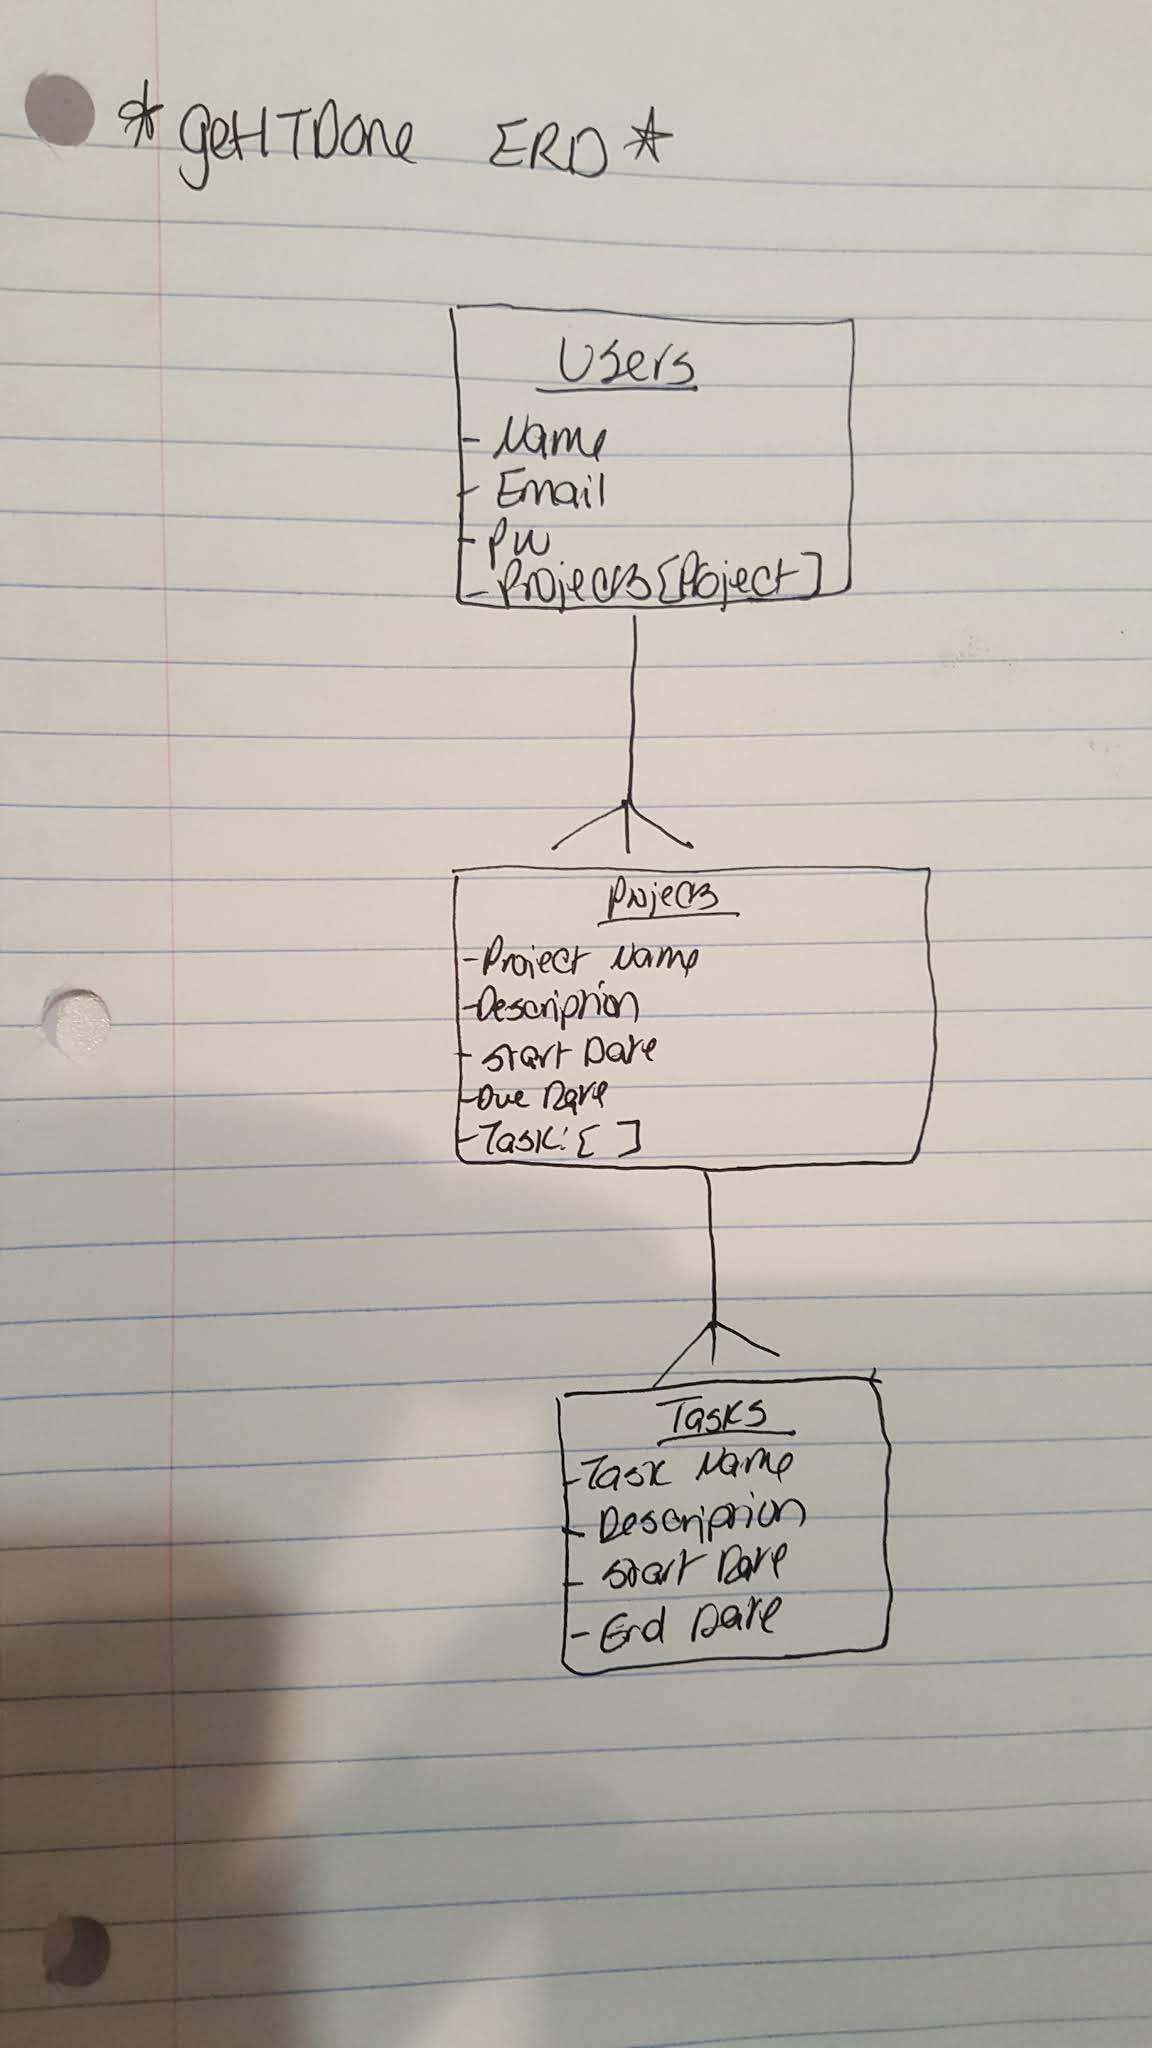 * getITDone ERD *
Users
- Name
- Email
- PW
- Projects [Project]
Projects
- Project Name
- Description
- Start Date
- Due Date
- Task: [ ]
Tasks
- Task Name
- Description
- Start Date
- End Date